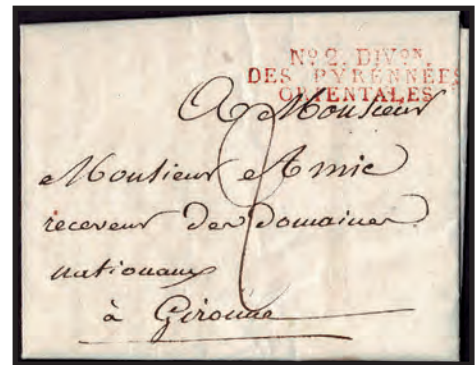 Nº 2. DIVon.
DES PYRÉNNÉES
ORIENTALES
A Monsieur
Monsieur Amic
receveur des Domaines
nationaux
à Gironne